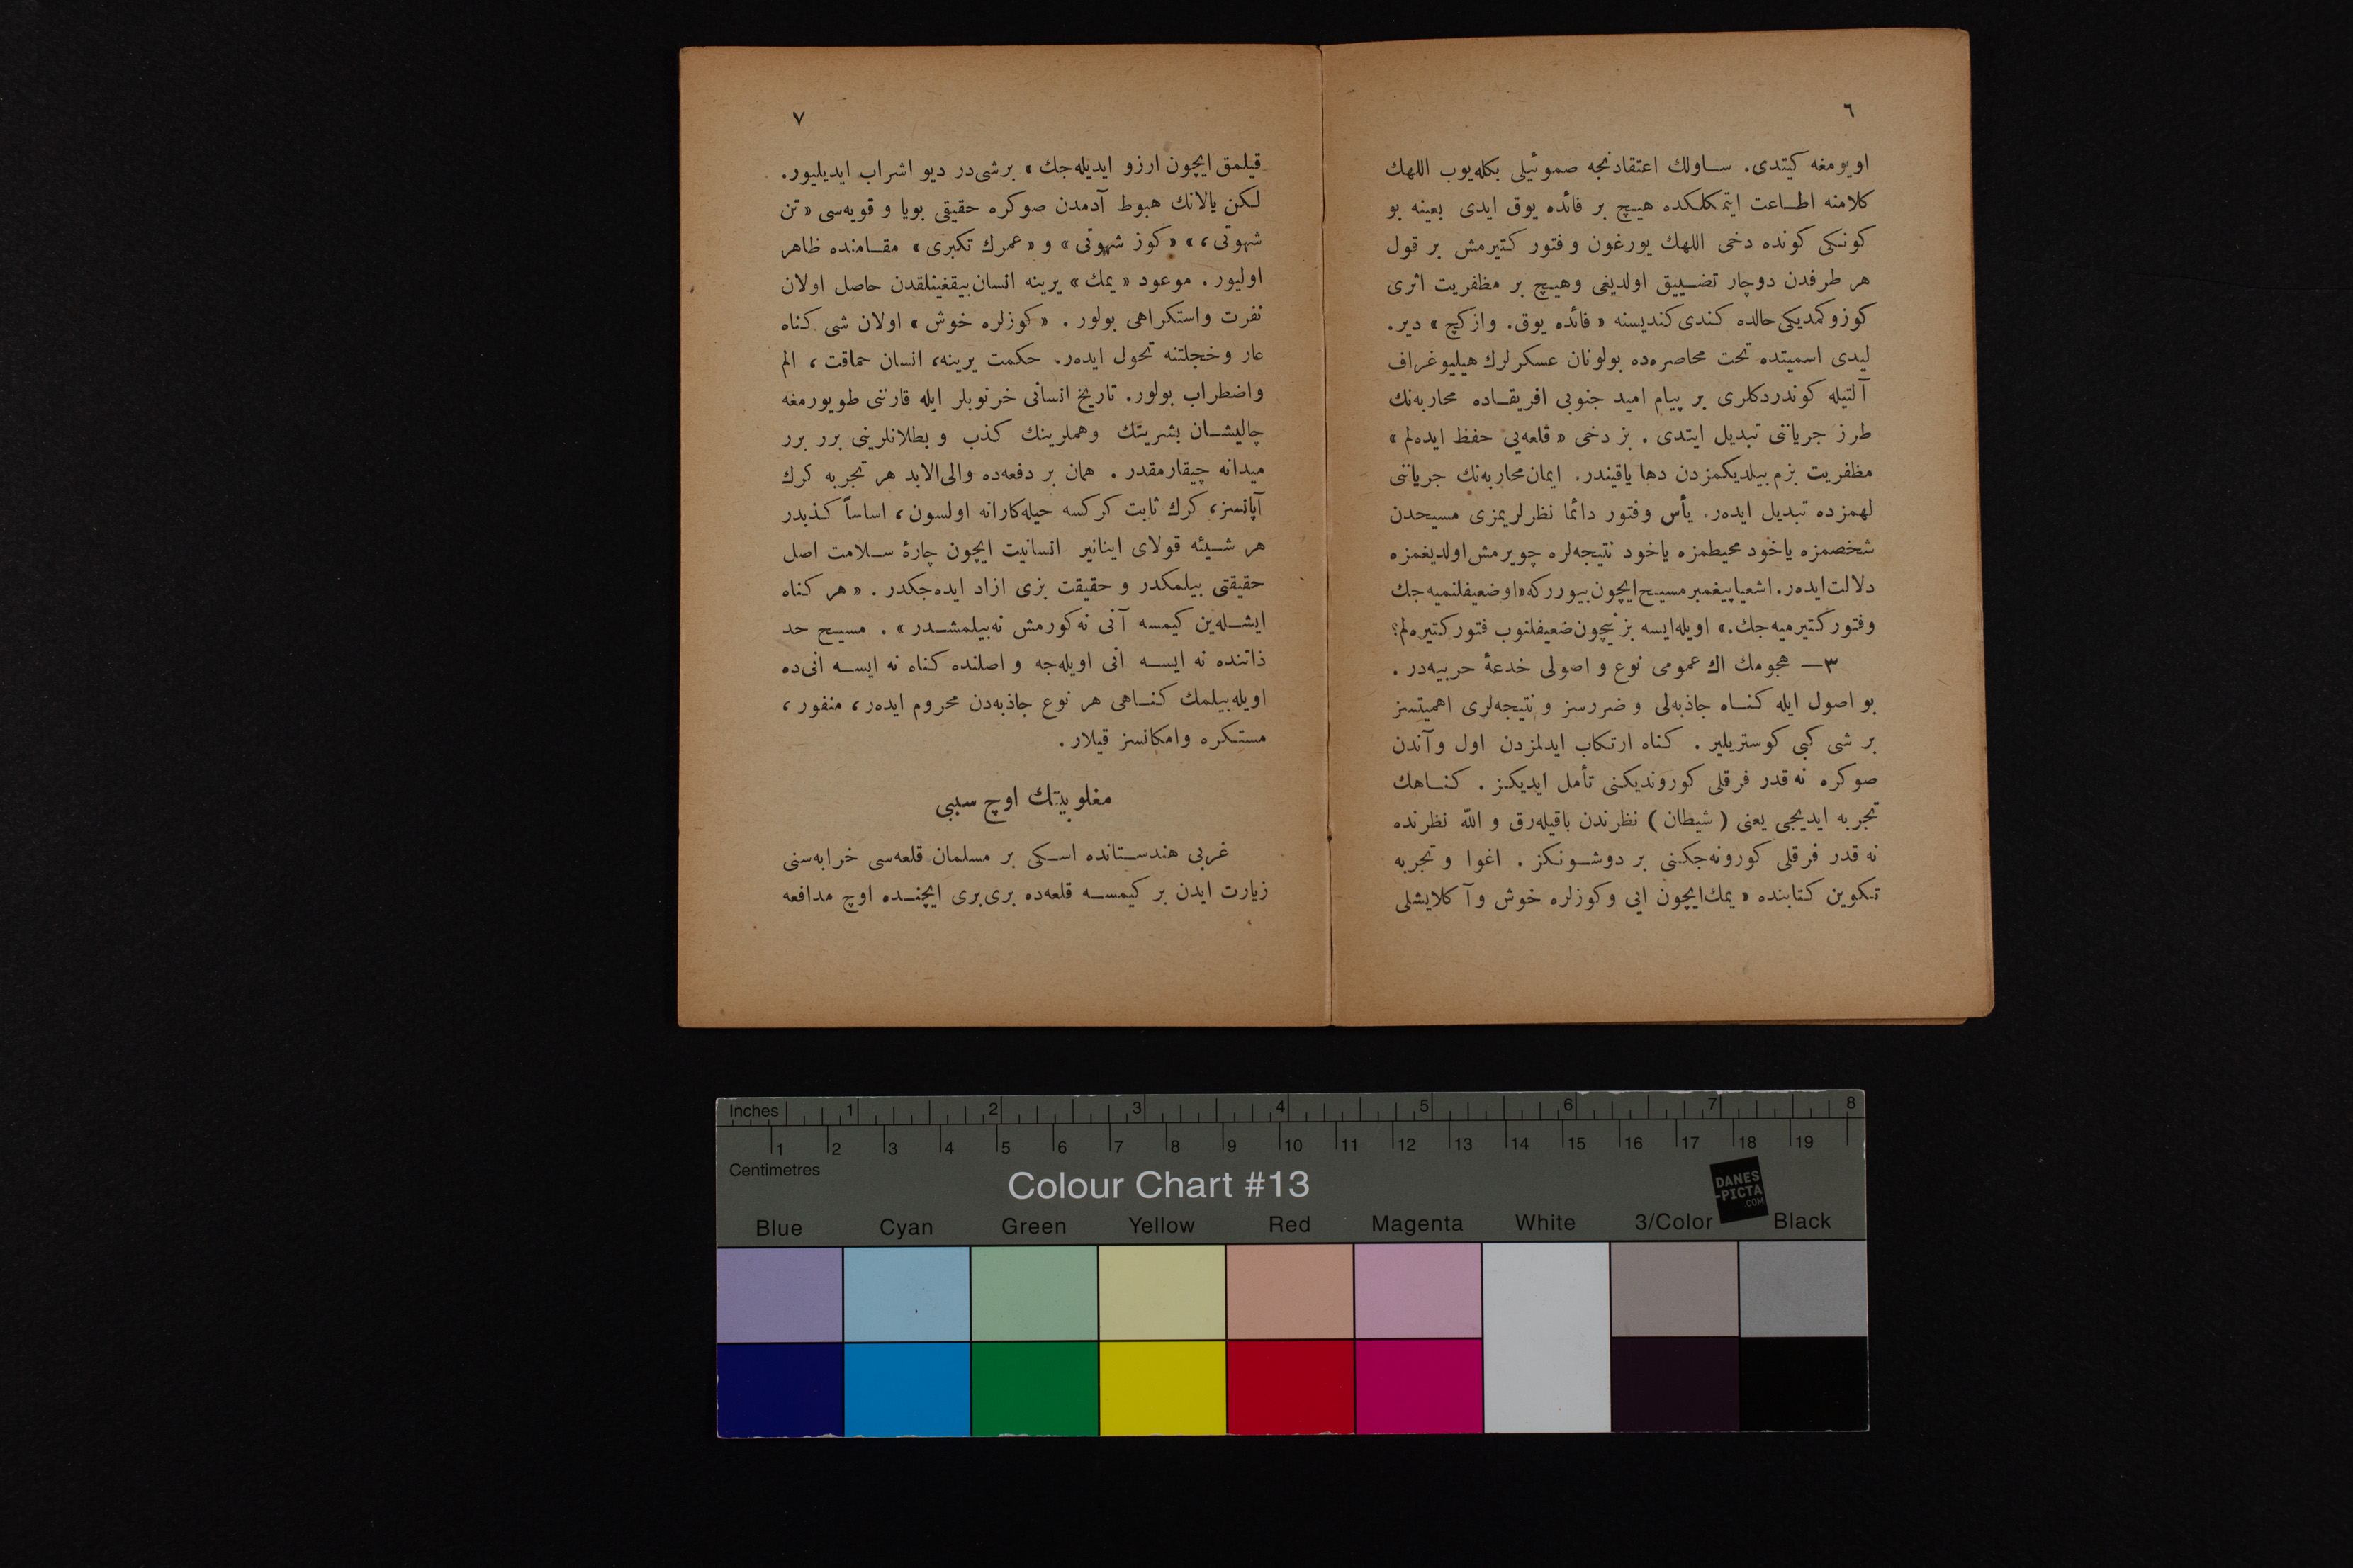 ٦
اويومغه كيتدی. ساولك اعتقادنجه صموئيلی بكله‌يوب اللهك
كلامنه اطاعت ايتمكلكده هيچ بر فائده يوق ايدی بعينه بو
كونكی كونده دخی اللهك يورغون و فتور كتيرمش بر قول
هر طرفدن دوچار تضييق اولديغی وهيچ بر مظفريت اثری
كوزوكمديكی حالده كندی كنديسنه « فائده يوق. وازكچ » دير.
ليدی اسميتده تحت محاصره‌ده بولونان عسكرلرك هيليوغراف
آلتيله كوندردكلری بر پيام اميد جنوبی افريقاده محاربه‌نك
طرز جرياننی تبديل ايتدی . بز دخی « قلعه‌يی حفظ ايده‌لم »
مظفريت بزم بيلديكمزدن دها ياقيندر. ايمان محاربه‌نك جرياننی
لهمزده تبديل ايده‌ر. يأس وفتور دائما نظرلريمزی مسيحدن
شخصمزه ياخود محيطمزه ياخود نتيجه‌لره چويرمش اولديغمزه
دلالت ايده‌ر. اشعيا پيغمبر مسيح ايچون بيوررکه « او ضعيفلنميه‌جك
وفتور كتيرميه‌جك.» اويله‌ايسه بز نيچون ضعيفلنوب فتور كتيره‌لم؟
٣— هجومك اك عمومی نوع و اصولی خدعهٔ حربيه‌در .
بو اصول ايله كناه جاذبه‌لی و ضررسز و نتيجه‌لری اهميتسز
بر شی كبی كوستريلير . كناه ارتكاب ايدلمزدن اول وآندن
صوكره نه قدر فرقلی كورونديكنی تأمل ايديكز . كناهك
تجربه ايديجی يعنی ( شيطان ) نظرندن باقيله‌رق و اللّه نظرنده
نه قدر فرقلی كورونه‌جكنی بر دوشونكز . اغوا و تجربه
تكوين كتابنده « يمك ايچون ايی وكوزلره خوش وآكلايشلی
٧
قيلمق ايچون ارزو ايديله‌جك » برشی‌در ديو اشراب ايديليور.
لكن يالانك هبوط آدمدن صوكره حقيقی بويا و قويه‌سی « تن
شهوتی ،» « كوز شهوتی » و « عمرك تكبری » مقامنده ظاهر
اوليور . موعود « يمك » يرينه انسان بيقغينلقدن حاصل اولان
نفرت واستكراهی بولور . « كوزلره خوش » اولان شی كناه
عار وخجلتنه تحول ايده‌ر. حكمت يرينه، انسان حماقت ، الم
واضطراب بولور. تاريخ انسانی خرنوبلر ايله قارننی طويورمغه
چاليشان بشريتك وهملرينك كذب و بطلانلرينی برر برر
ميدانه چيقارمقدر . همان بر دفعه‌ده والی‌الابد هر تجربه كرك
آپانسز، كرك ثابت كركسه حيله‌كارانه اولسون ، اساساً كذبدر
هر شيئه قولای اينانير انسانيت ايچون چارهٔ سلامت اصل
حقيقتی بيلمكدر و حقيقت بزی ازاد ايده‌جكدر . « هر كناه
ايشله‌ين كيمسه آنی نه كورمش نه بيلمشدر » . مسيح حد
ذاتنده نه ايسه انی اويله‌جه و اصلنده كناه نه ايسه انی ده
اويله بيلمك كناهی هر نوع جاذبه‌دن محروم ايده‌ر ، منفور ،
مستكره وامكانسز قيلار .
مغلوبيتك اوچ سببی
غربی هندستانده اسكی بر مسلمان قلعه‌سی خرابه‌سنی
زيارت ايدن بر كيمسه قلعه‌ده بری‌بری ايچنده اوچ مدافعه
Inches 1 2 3 4 5 6 7 8
1 2 3 4 5 6 7 8 9 10 11 12 13 14 15 16 17 18 19
Centimetres
Colour Chart #13
DANES
-PICTA
.COM
Blue Cyan Green Yellow Red Magenta White 3/Color Black